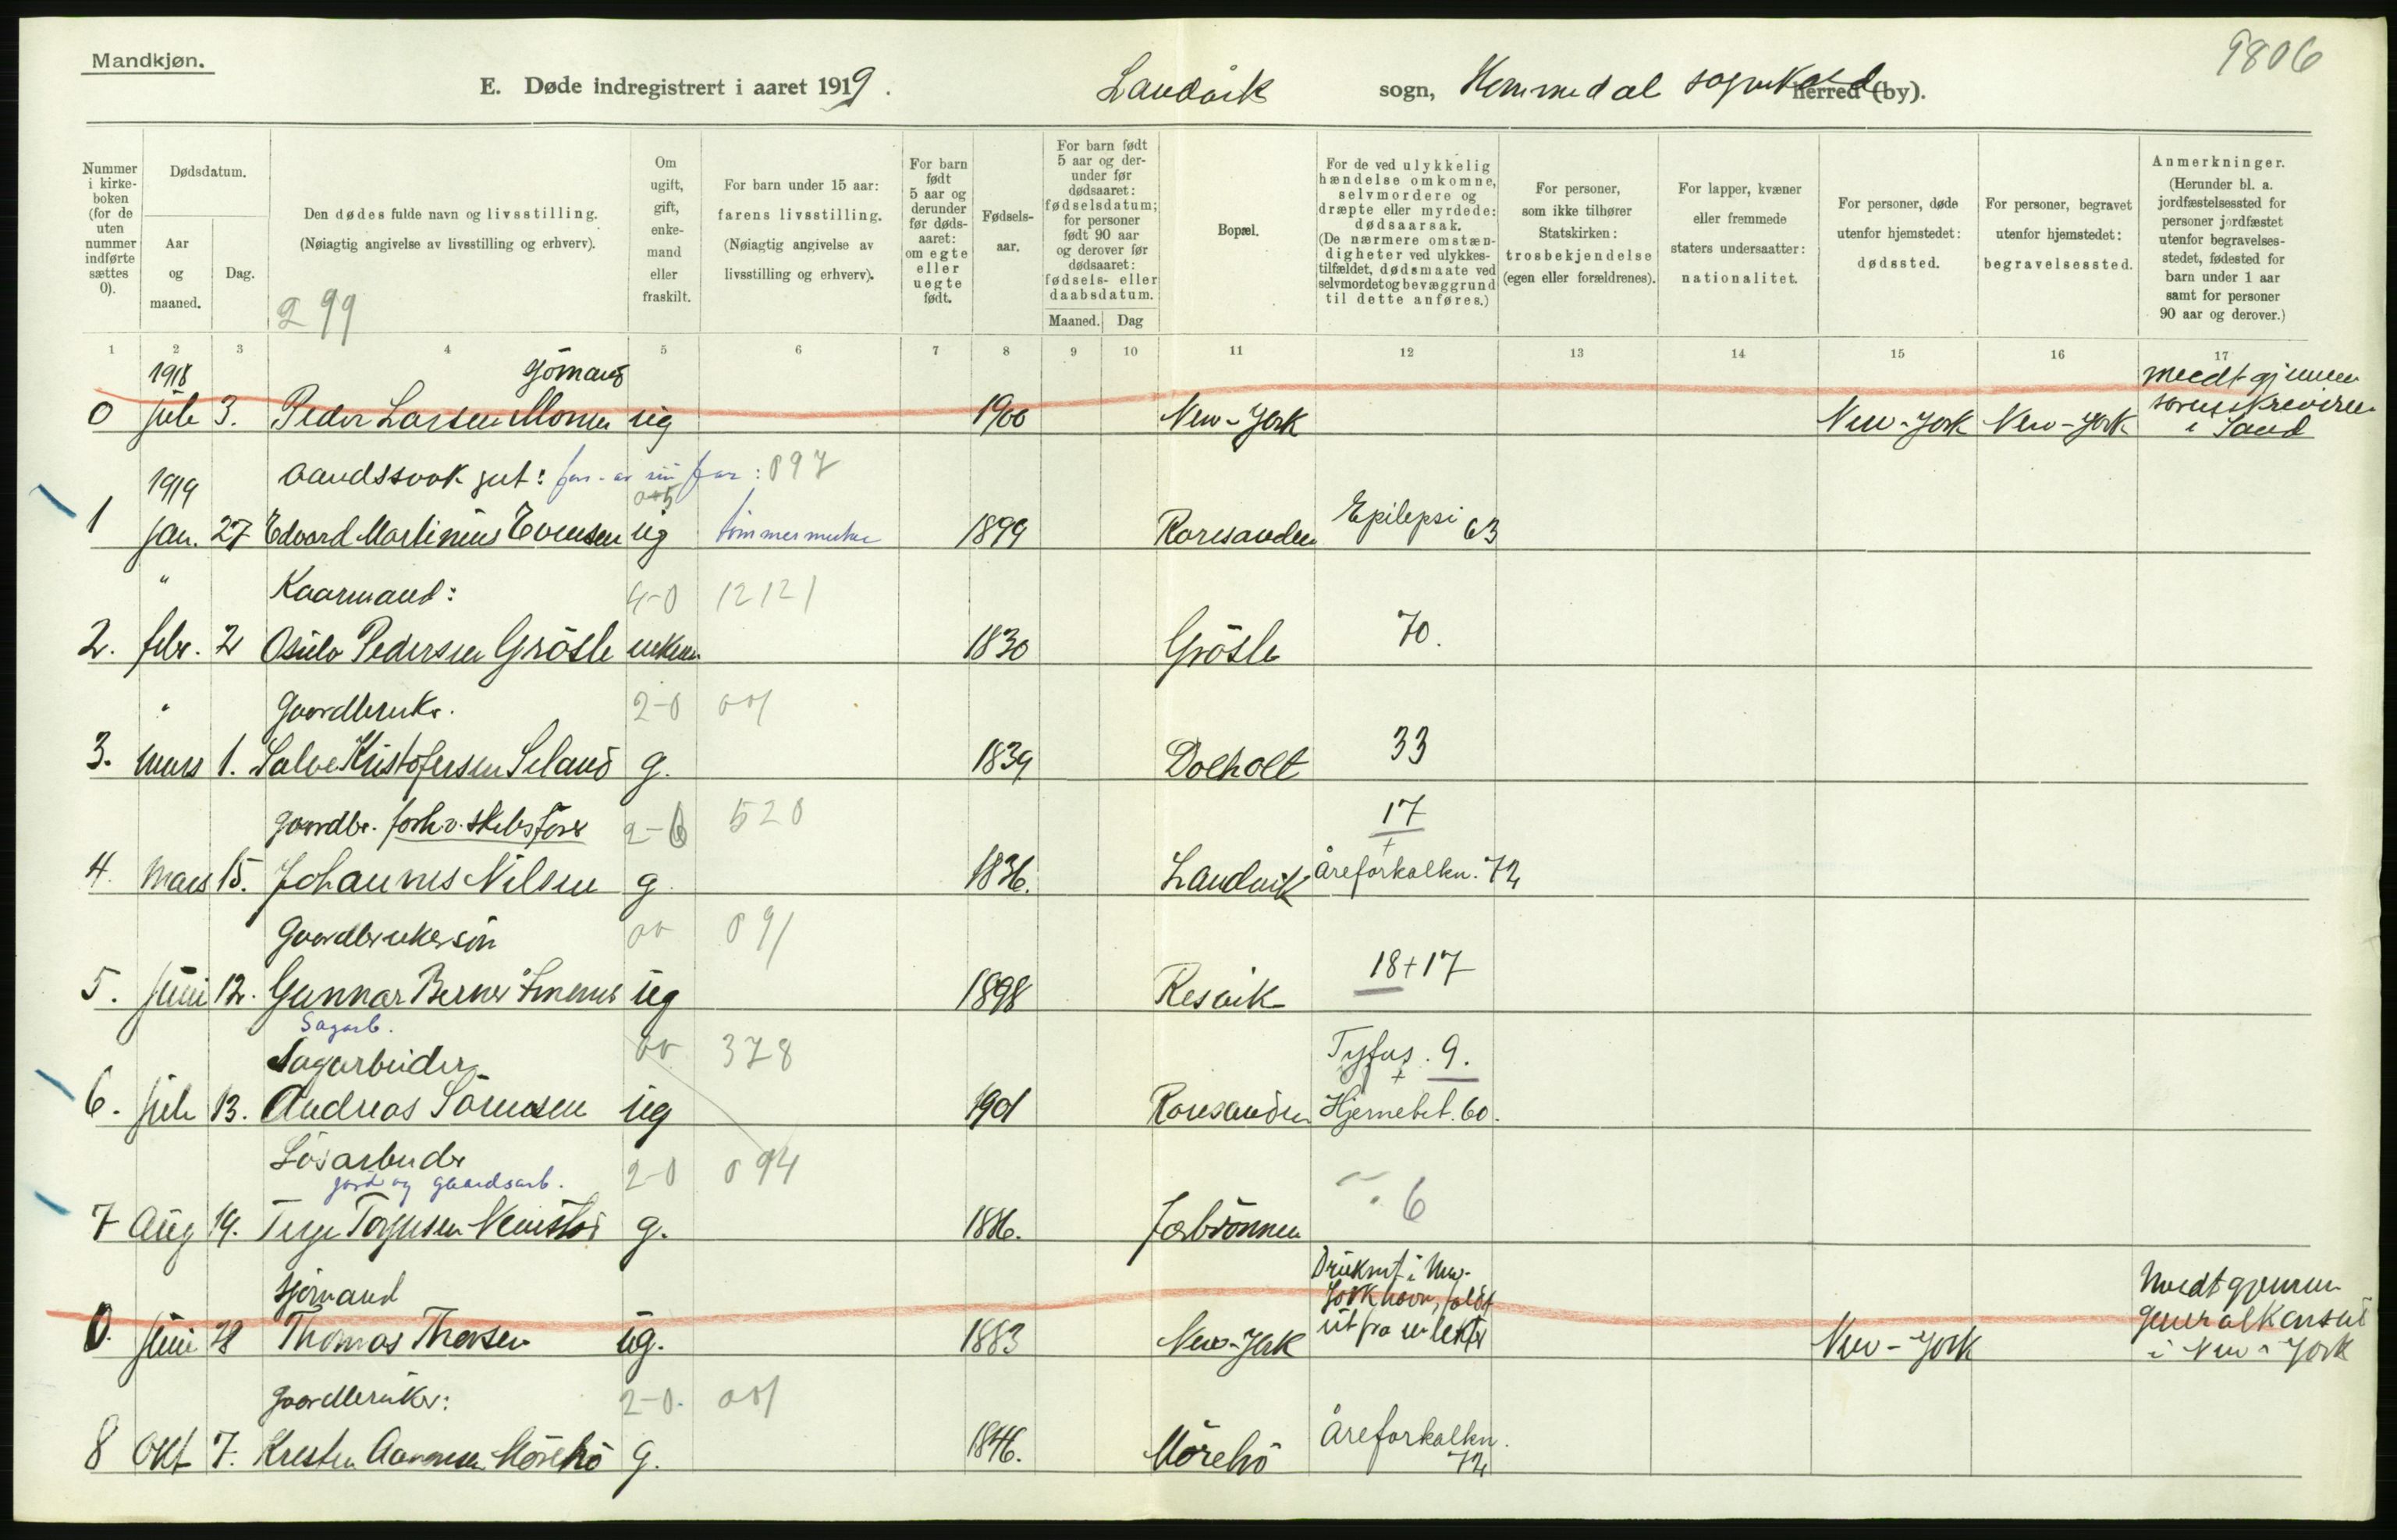 Mandkjøn.
9806
E. Døde indregistrert i aaret 1919.
Landvik sogn, Hommedal sognekald herred (by).
Nummer i kirke-boken (for de uten nummer indførte sættes 0).
Dødsdatum.
Aar og maaned.
Dag.
Den dødes fulde navn og livsstilling.
(Nøiagtig angivelse av livsstilling og erhverv).
299
Om ugift, gift, enke-mand eller fraskilt.
For barn under 15 aar: farens livsstilling.
(Nøiagtig angivelse av livsstilling og erhverv).
For barn født 5 aar og derunder før døds-aaret: om egte eller uegte født.
Fødsels-aar.
For barn født 5 aar og der-under før dødsaaret: fødselsdatum; for personer født 90 aar og derover før dødsaaret: fødsels- eller daabsdatum.
Maaned. Dag
Bopæl.
For de ved ulykkelig hændelse omkomne, selvmordere og dræpte eller myrdede: dødsaarsak.
(De nærmere omstæn-digheter ved ulykkes-tilfældet, dødsmaate ved selvmordet og bevæggrund til dette anføres.)
For personer, som ikke tilhører Statskirken: trosbekjendelse (egen eller forældrenes).
For lapper, kvæner eller fremmede staters undersaatter: nationalitet.
For personer, døde utenfor hjemstedet: dødssted.
For personer, begravet utenfor hjemstedet: begravelsessted.
Anmerkninger.
(Herunder bl. a. jordfæstelsessted for personer jordfæstet utenfor begravelses-stedet, fødested for barn under 1 aar samt for personer 90 aar og derover.)
1 2 3 4 5 6 7 8 9 10 11 12 13 14 15 16 17
1918 meedt gjennem
0 juli 3. Peder Larsen ug 1900 New-York New-York New-York sorenskriveren
i Sand
1919 aandssvak gut: far: 097
1 jan. 27 Edvard Martinius Evensen ug 1899 Roresanden Epilepsi 63
" Kaarmand: 4-0 1 2 1 2 1
2. febr. 2 Osulv Pedersen Grösle enkem. 1830 Grösle 70.
" Gaardbruker. 2-0 001
3. mars 1. Salve Kristofersen Seland g. 1839 Dolholt 33
gaardbr. forh.v. skibsförer 2-6 520 17
4 mars 15. Johannes Nilsen g. 1836. Landvik + åreforkalkn. 72
Gaardbrukersön 00 091
5. juni 12. Gunnar Berner ug 1898 Resvik 18+17
Sagarb.
Sagarbeider 00 378 Tyfus. 9.
6. juli 13. Andreas Sörensen ug 1901 Roresanden + Hjernebet. 60.
Lösarbeider 2-0 094
jord og gaardsarb.
7 Aug 19. Terje Torjusen g. 1886. 6
sjömand Druknet i New-
York havn, faldt
0. juni 28 Thomas Thorsen ug. 1883 New-York ut fra en lekter New-York
Meedt gjennem
generalkonsul
i New-York
gaardbruker: 2-0. 001
8 Okt 7. Kresten Aanonsen Mörehö g. 1846. Mörehö åreforkalkn.
72